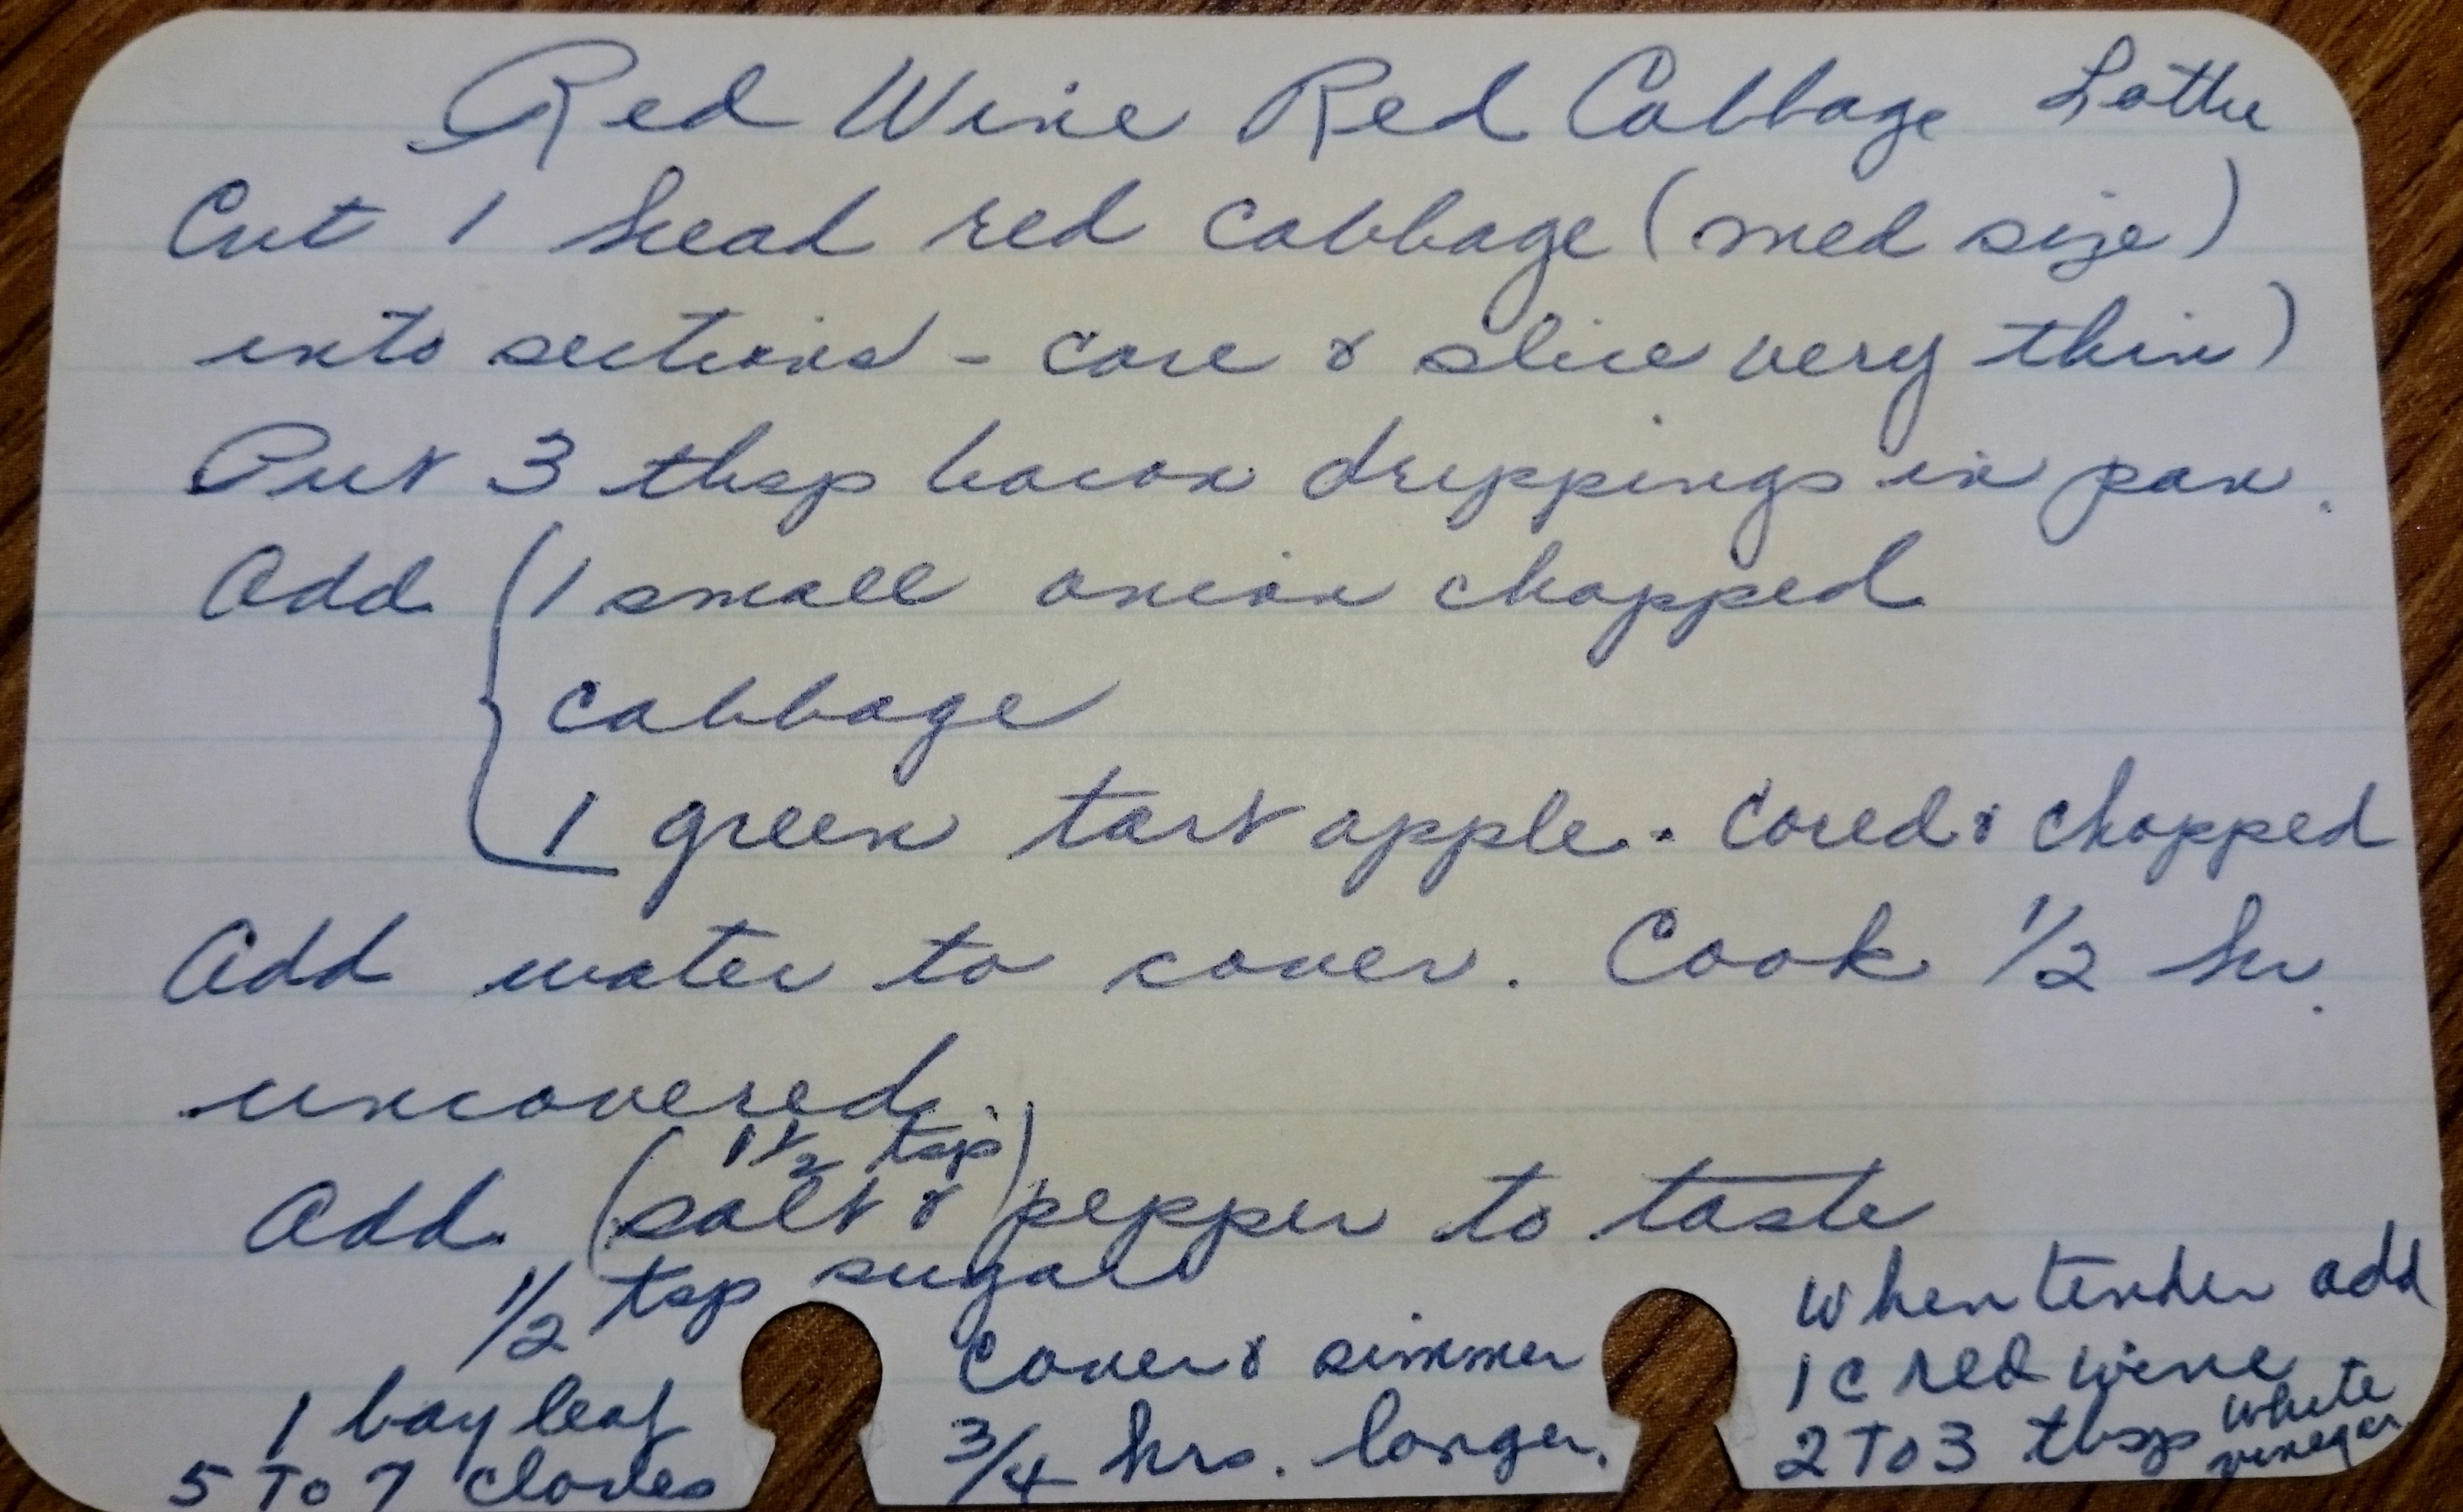 Red Wine Red Cabbage Lottie
Cut 1 head red cabbage (med size)
into sections - core & slice very thin)
Put 3 tbsp bacon drippings in pan.
Add { 1 small onion chopped
cabbage
1 green tart apple - cored & chopped
Add water to cover. Cook 1/2 hr.
uncovered.
1 1/2 tsp
Add (salt &) pepper to taste
1/2 tsp sugar
1 bay leaf
5 To 7 cloves
Cover & simmer
3/4 hrs. longer.
When tender add
1 c red wine
2 To 3 tbsp white
vinegar